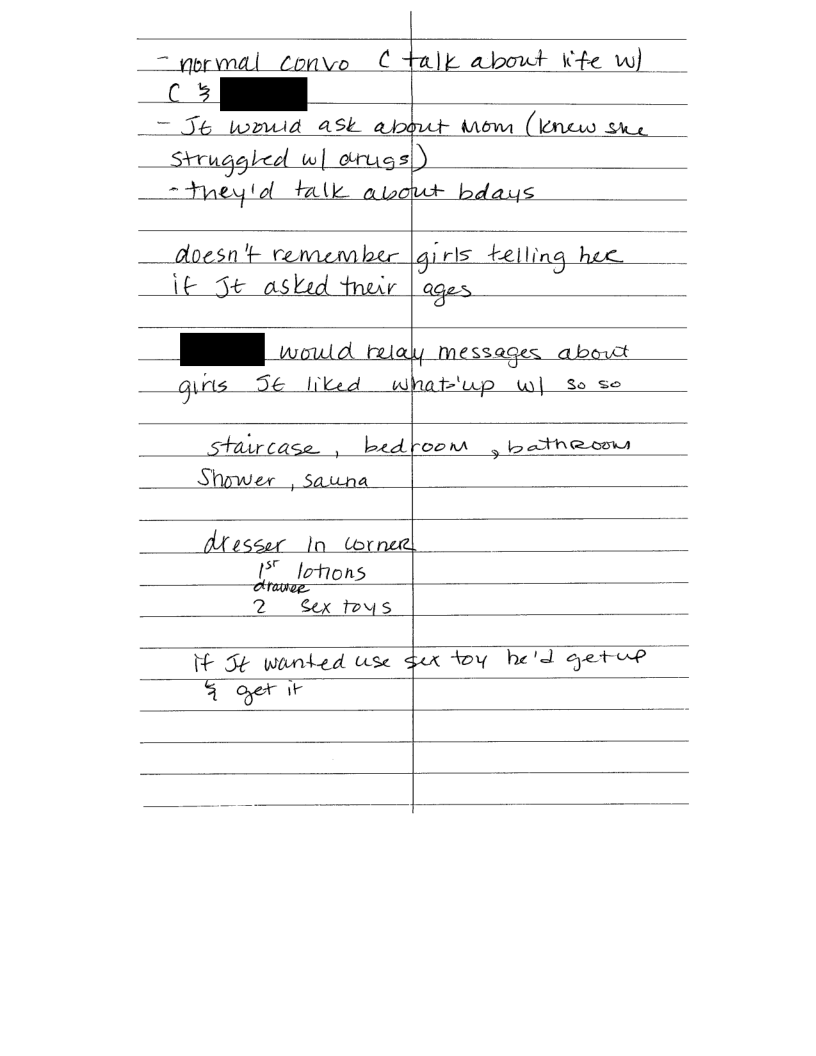 - normal convo C talk about life w/
C &
- JE would ask about Mom (knew she
struggled w/ drugs)
- they'd talk about bdays
doesn't remember girls telling her
if JE asked their ages
would relay messages about
girls JE liked what's'up w/ so so
staircase, bedroom, bathroom
Shower, sauna
dresser in corner
1st lotions
drawer
2 sex toys
if JE wanted use sex toy he'd get up
& get it